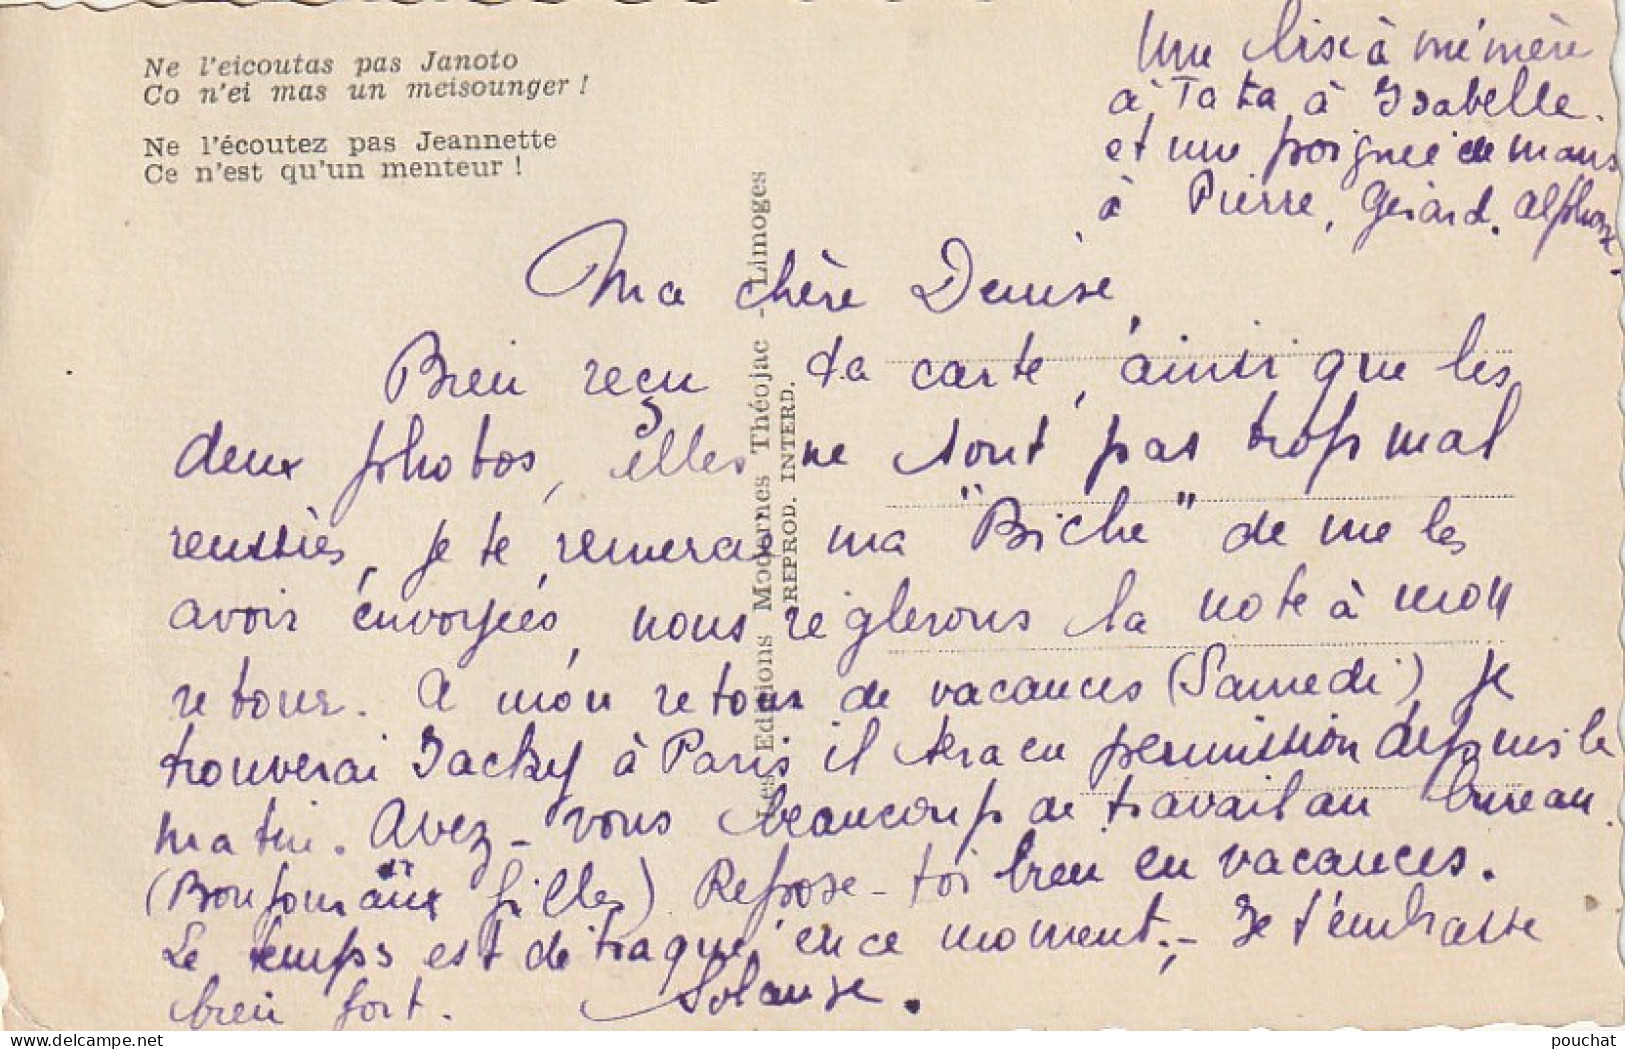 Ne l'eicoutas pas Janoto
Co n'ei mas un meisounger !
Ne l'écoutez pas Jeannette
Ce n'est qu'un menteur !
Une bise à mémère
à Tata, à Isabelle.
et une poignée de mains
à Pierre, Gérard. Alphonse.
Les Editions Modernes Théojac - Limoges
REPROD. INTERD.
Ma chère Denise,
Bien reçu ta carte, ainsi que les
deux photos, elles ne sont pas trop mal
reussies, je te remercie ma "Biche" de me les
avoir envoyées, nous réglerons la note à mon
retour. A mon retour de vacances (Samedi) je
trouverai Jacky à Paris il sera en permission depuis le
matin. Avez-vous beaucoup de travail au bureau.
(Bonjour aux filles) Repose-toi bien en vacances.
Le temps est detraqué en ce moment.- Je t'embrasse
bien fort. Solange.
delcampe.net
pouchat